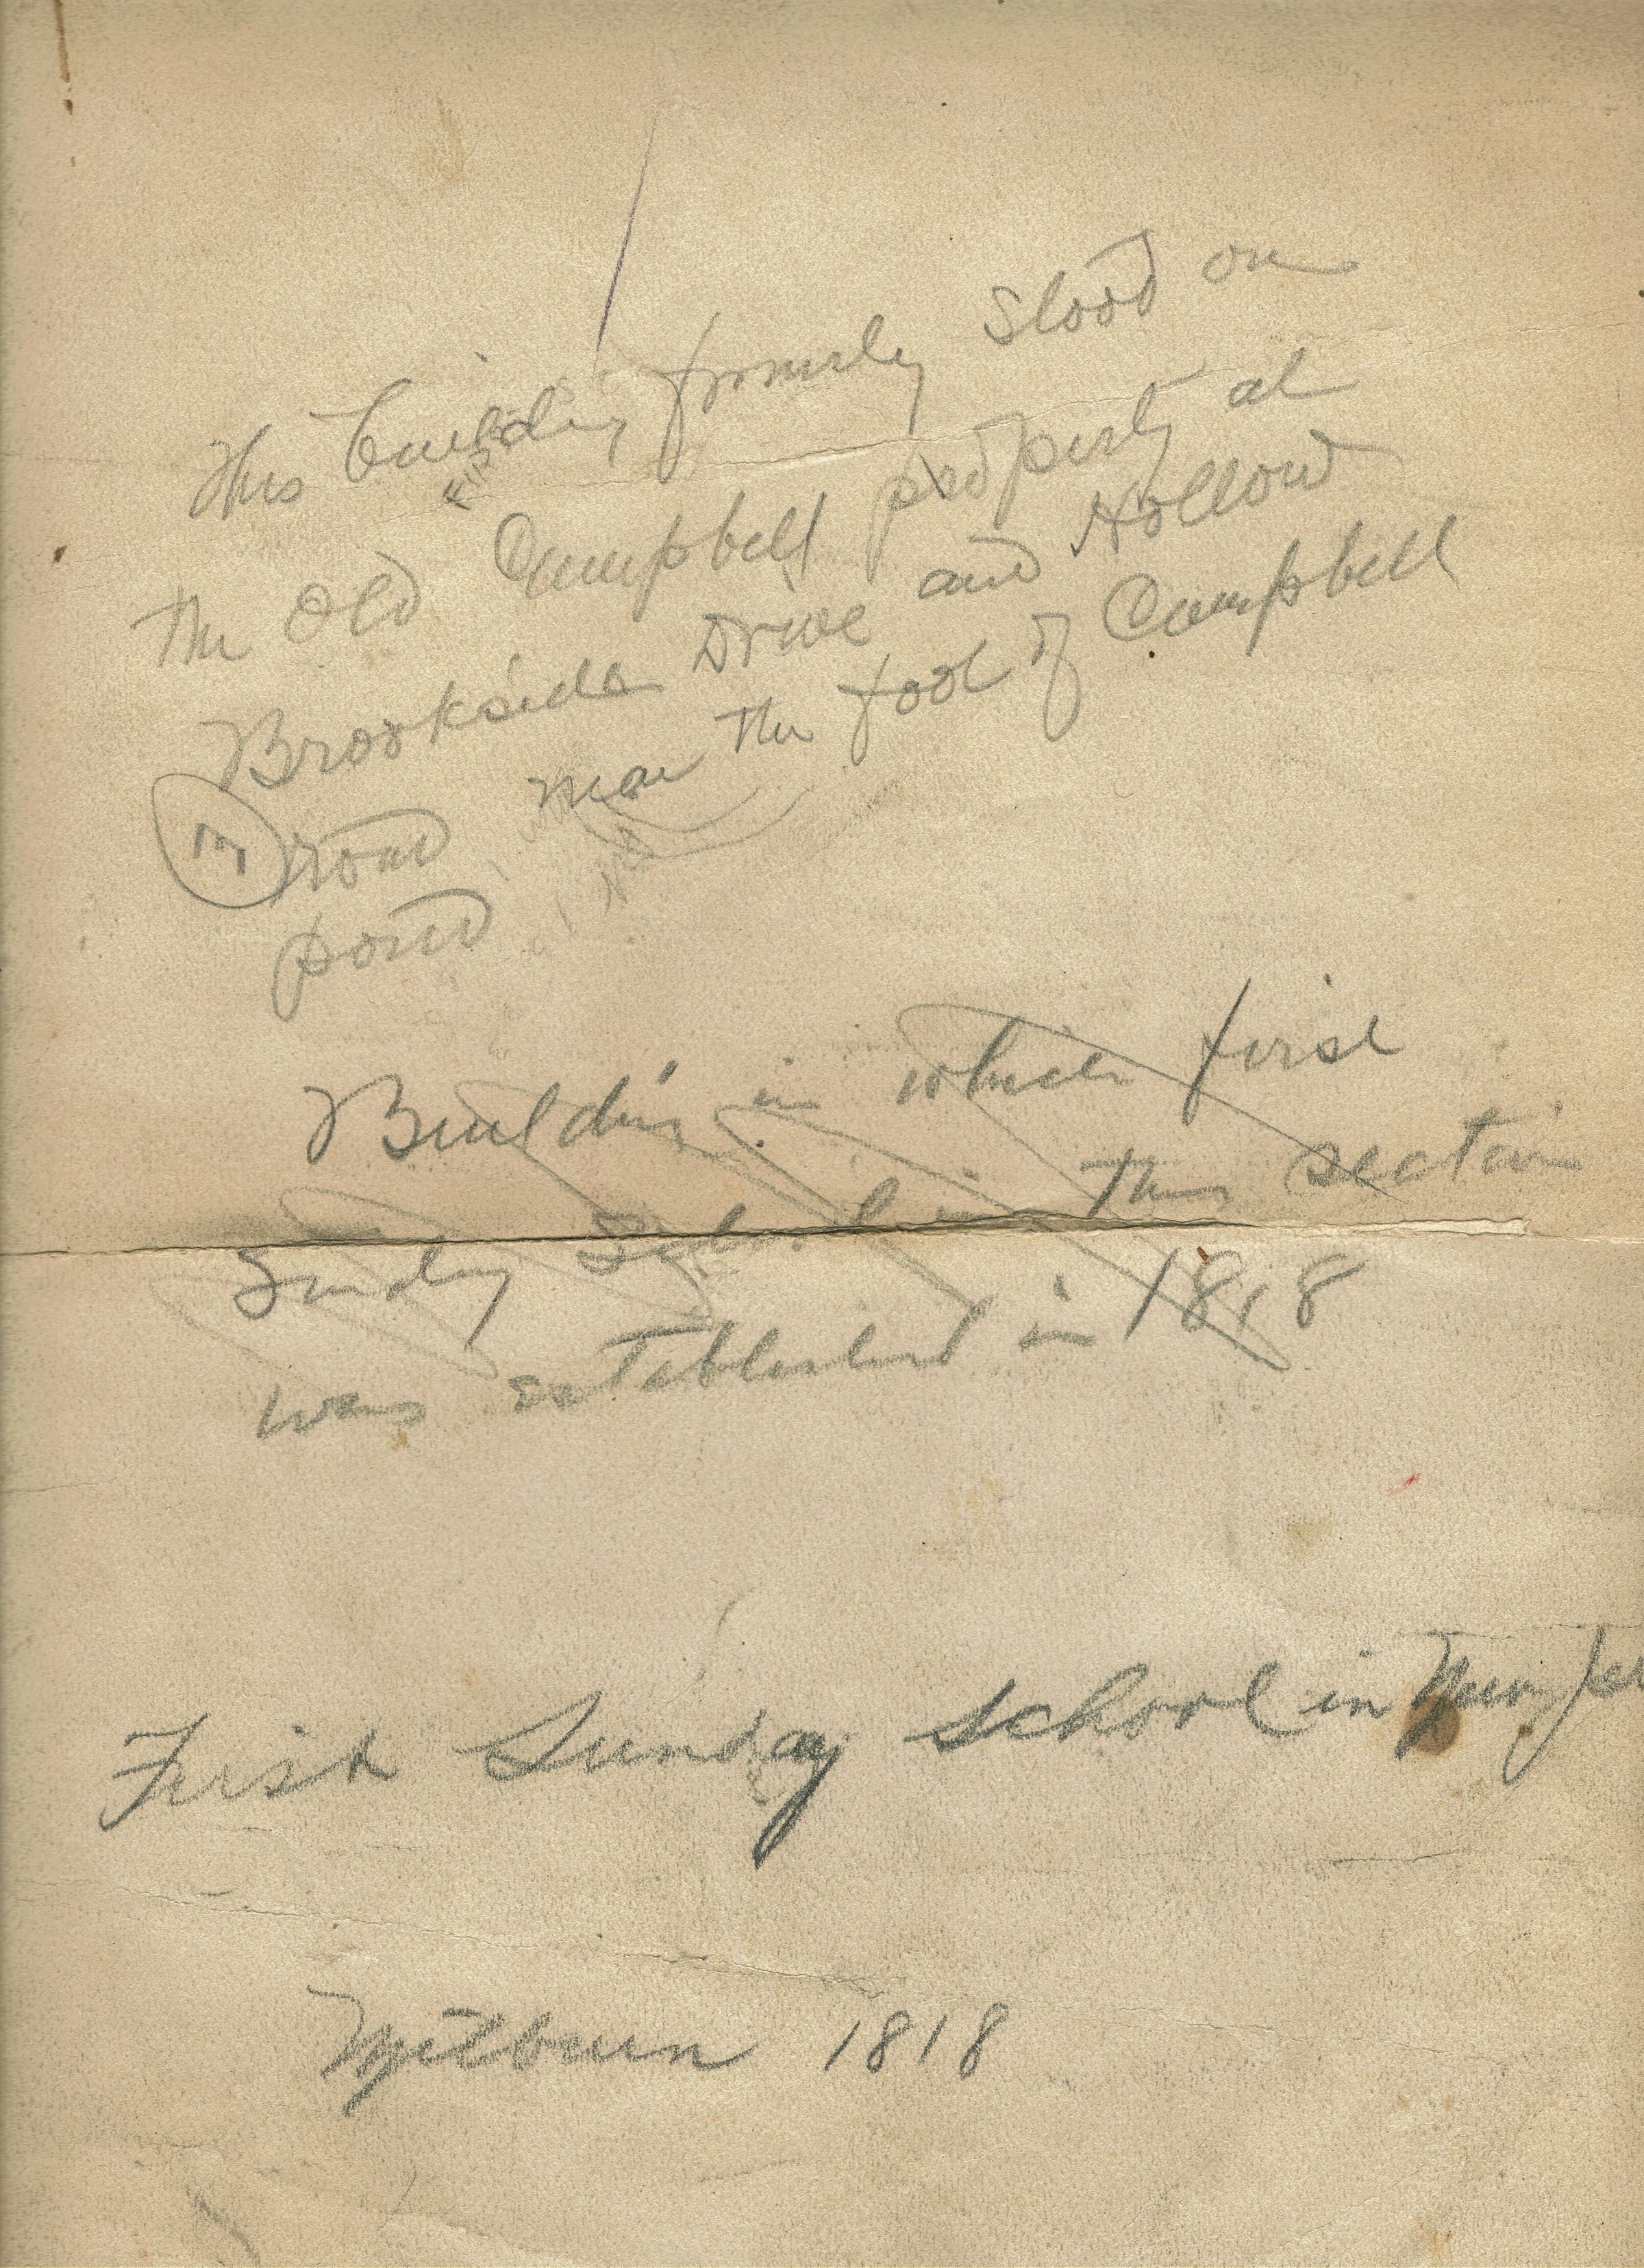 This building formerly stood on
the old Campbell property at
Brookside Drive and Hollow
road near the foot of Campbell
pond
Building in which first
Sunday School in this section
was established in 1818
First Sunday School in
Milburn 1818